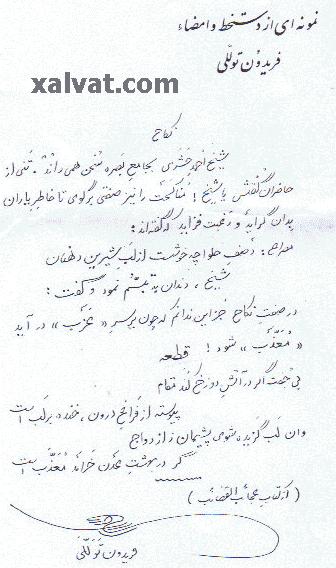 نمونه ای از دستخط و امضاء
فریدون تولّلی
xalvat.com
نکاح
شیخ احمدِ خَشوَری بجامعِ بَصره سُخَن همی راند. تنی از
حاضران گفتش یا شیخ! مُناکحَت را نیز صفتی برگوی تا خاطرِ یاران
بدان گراید و رغبت فزاید که گفته اند:
مصراع: وَصفِ حلوا چه خوشست از لَبِ شیرین دهنان
شیخ، دندان به تبسّم نمود و گفت:
در صفتِ نکاح جُز این ندانم که چون بر سرِ «عَزَب» در آید
«مُعَذَّب» شود! قطعه
بی جُفت اگر در آتشِ دوزخ کُند مَقام
پیوسته از فَراغِ درون، خنده بر لب است
وان لَب گزیده شویِ پشیمان ز ازدواج
گر در بهشتِ عَدن خَرامَد مُعَذَّب است
(از کتابِ عجائب القصائب)
فریدون تَوَلّلی